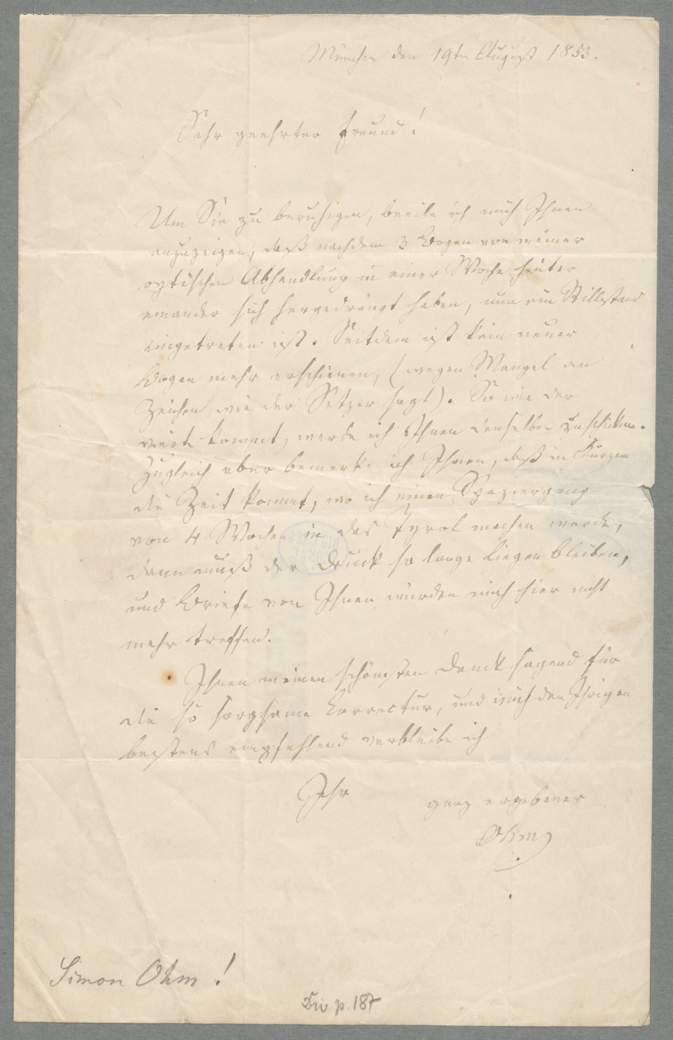 München den 19ten August 1853.
Sehr geehrter Freund!
Um Sie zu beruhigen, beeile ich mich Ihnen
anzuzeigen, daß nachdem 3 Bogen von meiner
optischen Abhandlung in einer Woche hinter
einander sich hergedrängt haben, nun ein Stillstand
eingetreten ist. Seitdem ist kein neuer
Bogen mehr erschienen, (wegen Mangel an
Zeichen, wie der Setzer sagt). So wie der
vierte kommt, werde ich Ihnen denselben zuschicken.
Zugleich aber bemerke ich Ihnen, daß in Kurzem
die Zeit kommt, wo ich einen Spaziergang
von 4 Wochen in das Tyrol machen werde,
dann muß der Druck so lange liegen bleiben,
und Briefe von Ihnen würden mich hier nicht
mehr treffen.
Ihnen meinen schönsten Dank sagend für
die so sorgsame Correctur, und mich den Ihrigen
bestens empfehlend verbleibe ich
Ihr ganz ergebener
Ohm
Simon Ohm!
p. 187